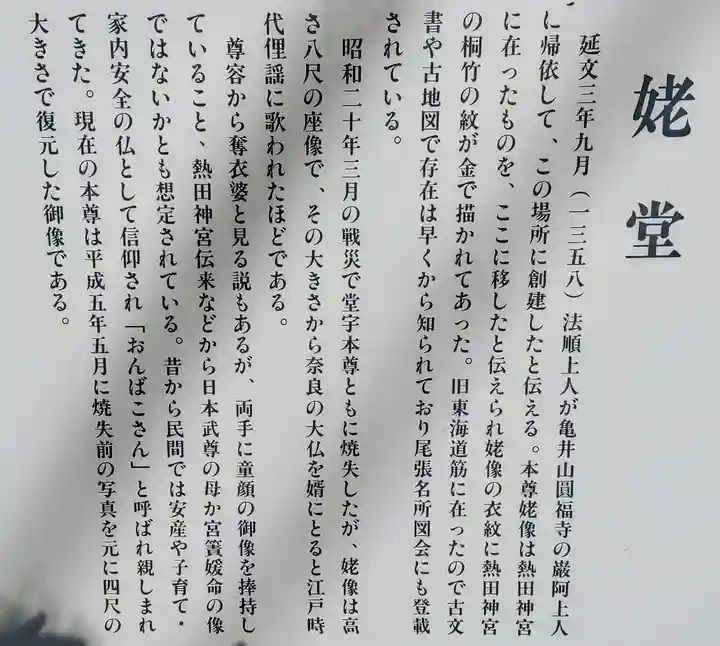 姥堂
延文三年九月（一三五八）法順上人が亀井山圓福寺の巌阿上人
に帰依して、この場所に創建したと伝える。本尊姥像は熱田神宮
に在ったものを、ここに移したと伝えられ姥像の衣紋に熱田神宮
の桐竹の紋が金で描かれてあった。旧東海道筋に在ったので古文
書や古地図で存在は早くから知られており尾張名所図会にも登載
されている。
昭和二十年三月の戦災で堂宇本尊ともに焼失したが、姥像は高
さ八尺の座像で、その大きさから奈良の大仏を婿にとると江戸時
代俚謡に歌われたほどである。
尊容から奪衣婆と見る説もあるが、両手に童顔の御像を捧持し
ていること、熱田神宮伝来などから日本武尊の母か宮簀媛命の像
ではないかとも想定されている。昔から民間では安産や子育て・
家内安全の仏として信仰され「おんばこさん」と呼ばれ親しまれ
てきた。現在の本尊は平成五年五月に焼失前の写真を元に四尺の
大きさで復元した御像である。